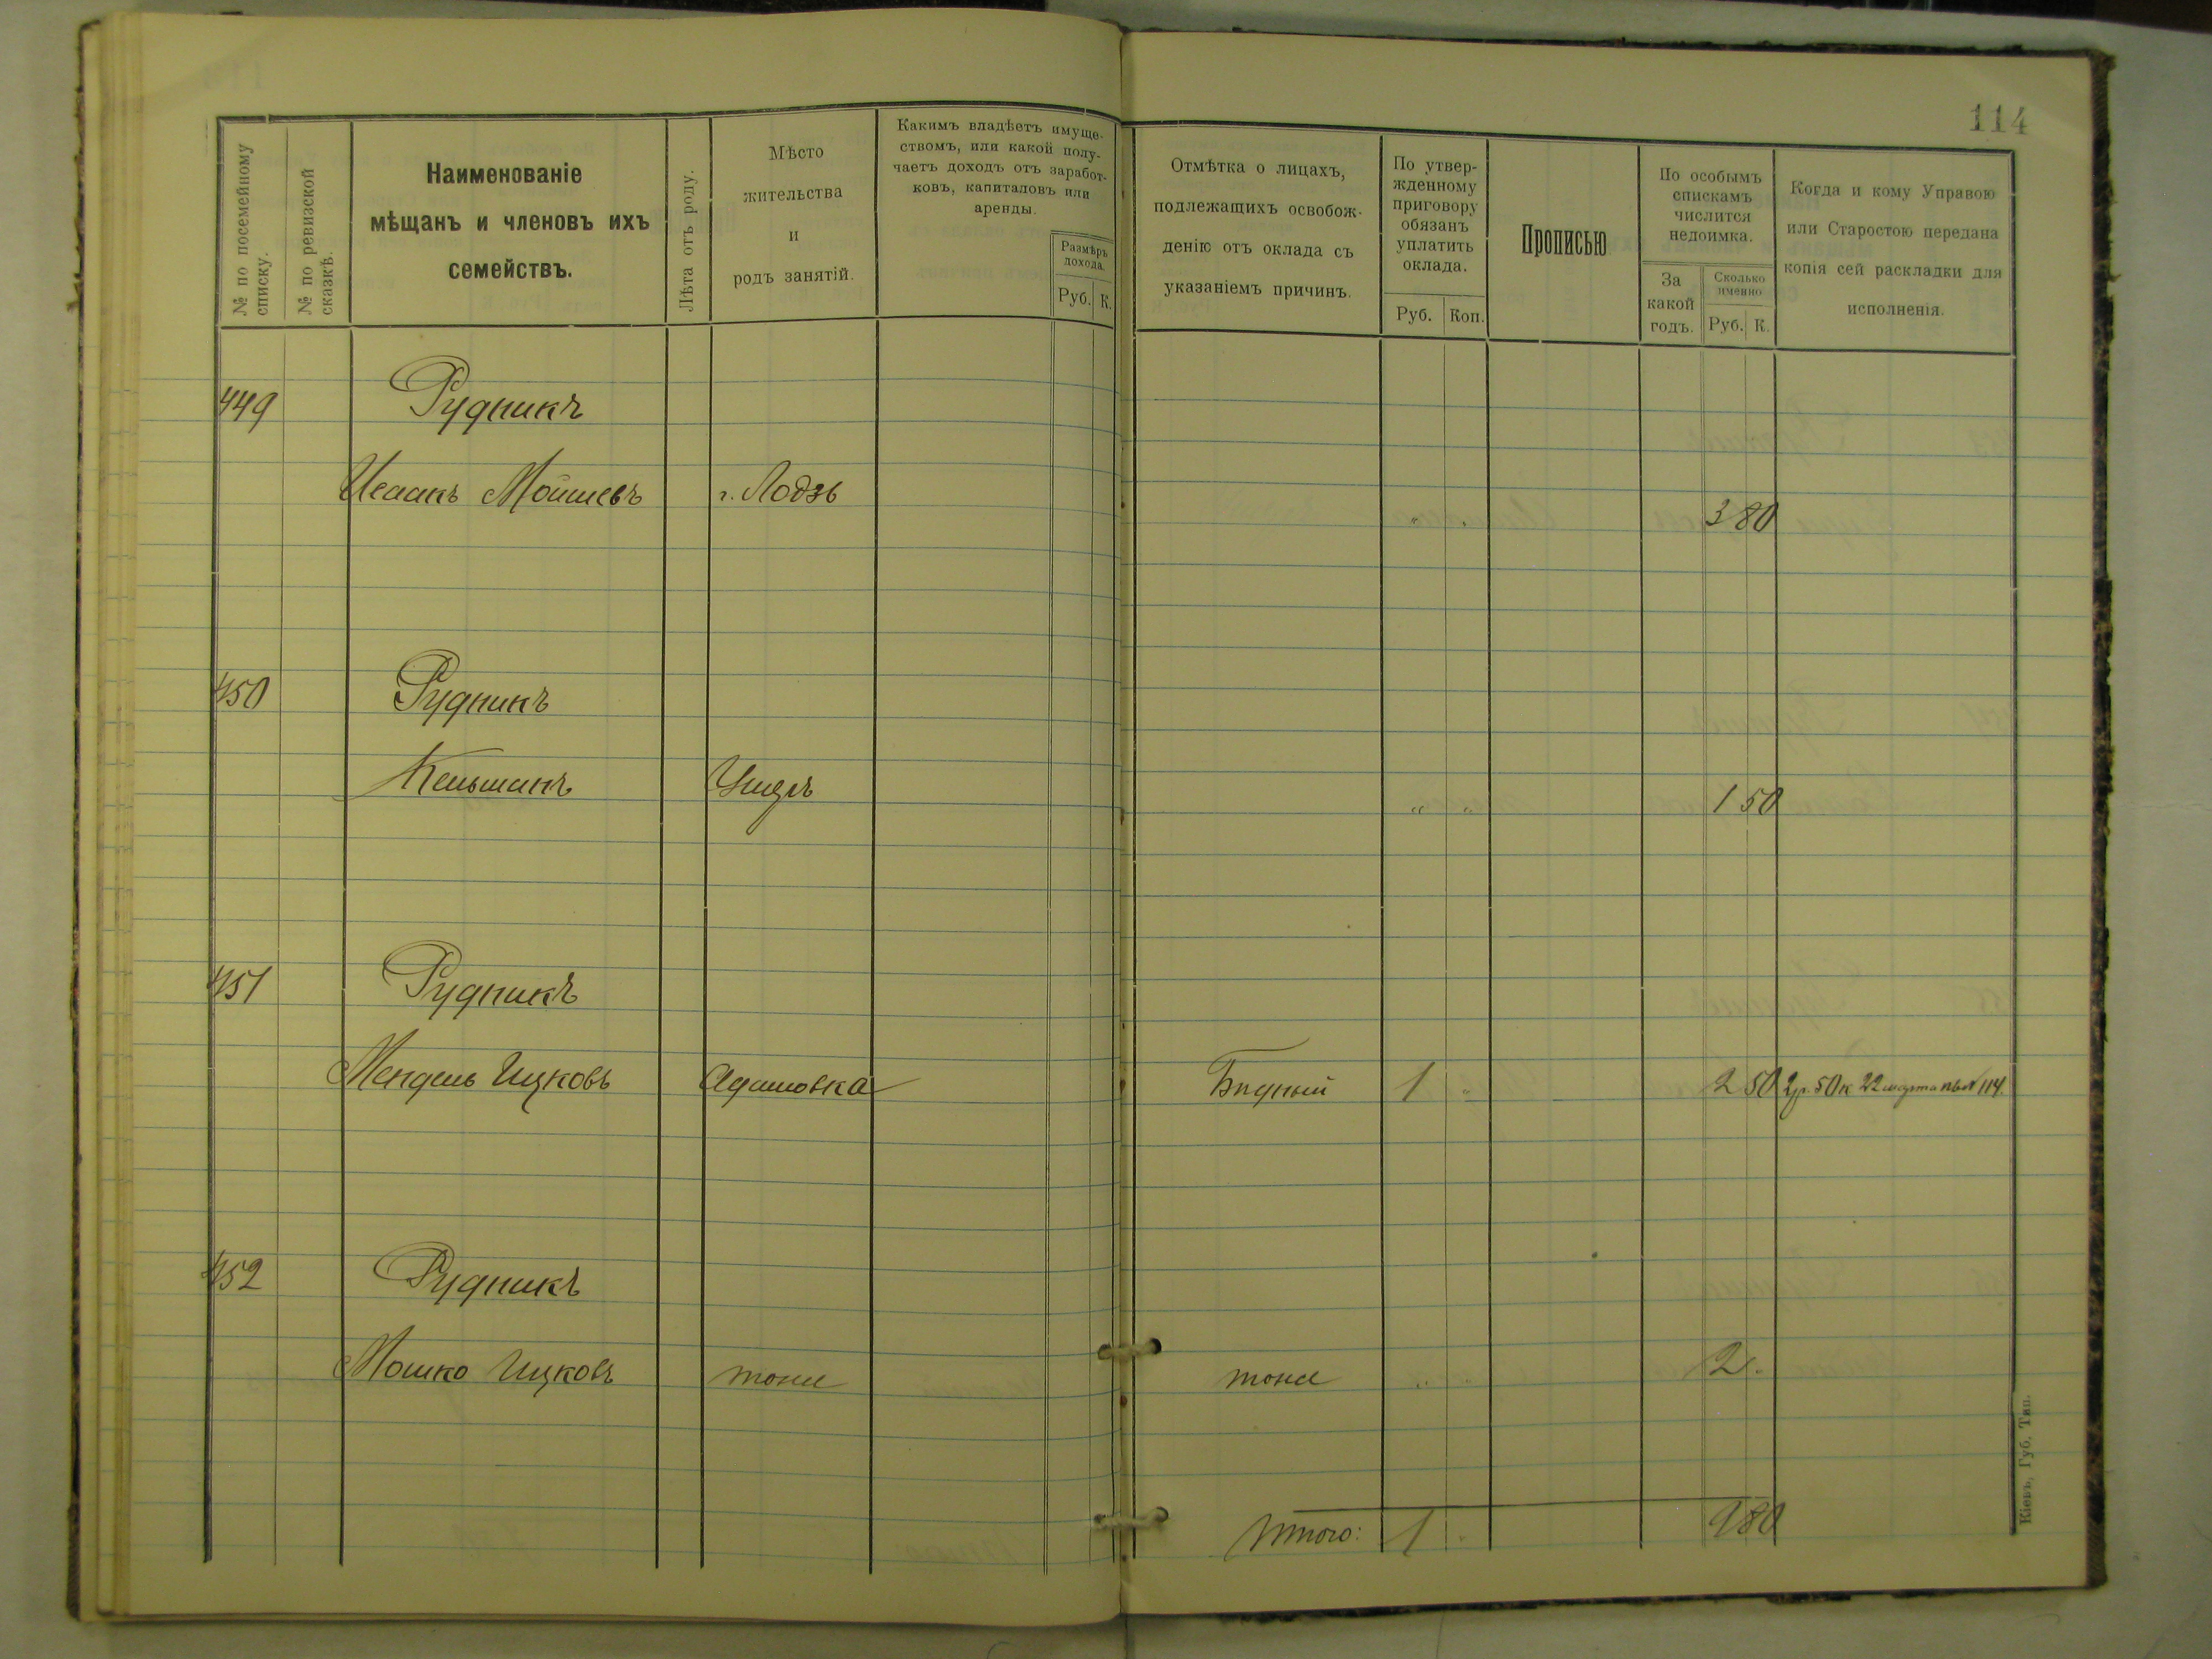 114
№ по посемейному списку.
№ по ревизской сказкѣ.
Наименованіе
мѣщанъ и членовъ ихъ
семействъ.
Лѣта отъ роду.
Мѣсто
жительства
и
родъ занятій.
Какимъ владѣетъ имуще-
ствомъ, или какой полу-
чаетъ доходъ отъ заработ-
ковъ, капиталовъ или
аренды.
Размѣръ
дохода.
Руб. К.
Отмѣтка о лицахъ,
подлежащихъ освобож-
денію отъ оклада съ
указаніемъ причинъ.
По утвер-
жденному
приговору
обязанъ
уплатить
оклада.
Руб. Коп.
Прописью
По особымъ
спискамъ
числится
недоимка.
За
какой
годъ.
Сколько
именно
Руб. К.
Когда и кому Управою
или Старостою передана
копія сей раскладки для
исполненія.
449 Рудникъ
Исаакъ Мошиевъ г. Лодзь " " 3 80
450 Рудникъ
Кельманъ " " 1 50
451 Рудникъ
Мендель Ицковъ Адамовка Бидный 1 " 2 50 2р. 50к 22 марта 114.
452 Рудникъ
Мошко Ицковъ тоже тоже " " 2 .
Итого: 1 " 9 80
Кіевъ, Губ. Тип.